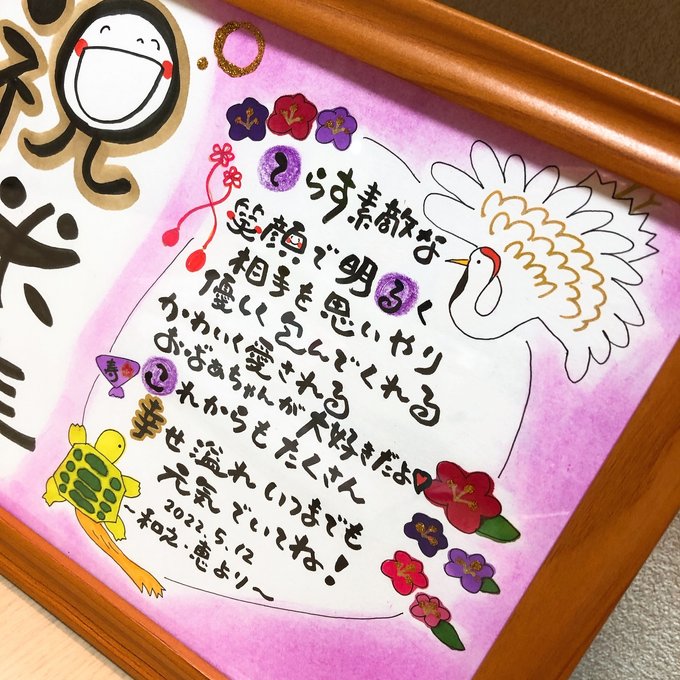 祝
てらす素敵な
笑顔で明るく
相手を思いやり
優しく包んでくれる
かわいく愛される
おばあちゃんが大好きだよ♥
寿
これからもたくさん
幸せ溢れいつまでも
元気でいてね!
2022.5.12
~和之・恵より~